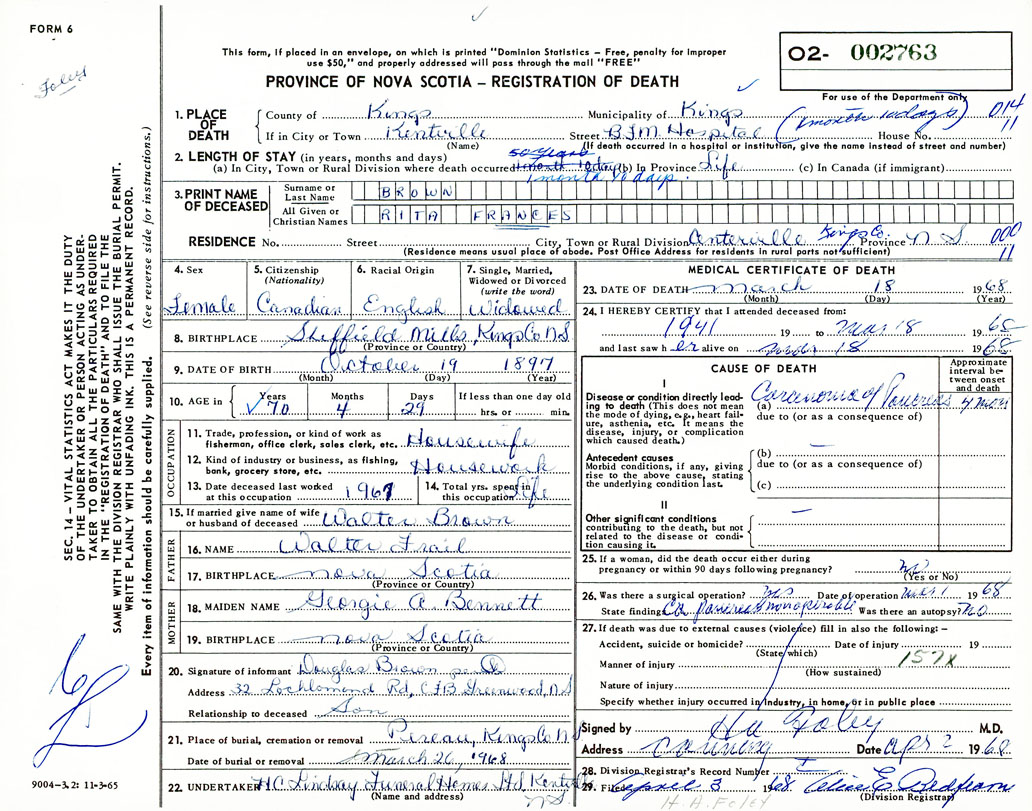 FORM 6
Foley
This form, if placed in an envelope, on which is printed "Dominion Statistics – Free, penalty for improper
use $50," and properly addressed will pass through the mail "FREE"
O2- 002763
PROVINCE OF NOVA SCOTIA – REGISTRATION OF DEATH
For use of the Department only
1. PLACE OF DEATH
County of Kings Municipality of Kings (1 month 10 days) 014
If in City or Town Kentville Street B.F.M. Hospital House No. 11
(Name) (If death occurred in a hospital or institution, give the name instead of street and number)
2. LENGTH OF STAY (in years, months and days) 50 years
(a) In City, Town or Rural Division where death occurred 1 month 10 days (b) In Province Life (c) In Canada (if immigrant)
1 month 10 days.
3. PRINT NAME OF DECEASED
Surname or Last Name BROWN
All Given or Christian Names RITA FRANCES
RESIDENCE No. Street City, Town or Rural Division Centerville Kings Co. Province N S 000
(Residence means usual place of abode. Post Office Address for residents in rural parts not sufficient) 11
4. Sex
Female
5. Citizenship
(Nationality)
Canadian
6. Racial Origin
English
7. Single, Married,
Widowed or Divorced
(write the word)
Widowed
8. BIRTHPLACE Sheffield Mills, Kings Co N.S
(Province or Country)
9. DATE OF BIRTH October 19 1897
(Month) (Day) (Year)
10. AGE in Years 70 Months 4 Days 29 If less than one day old
hrs. or min.
OCCUPATION
11. Trade, profession, or kind of work as
fisherman, office clerk, sales clerk, etc. Housewife
12. Kind of industry or business, as fishing,
bank, grocery store, etc. Housework
13. Date deceased last worked
at this occupation 1967
14. Total yrs. spent in
this occupation Life
15. If married give name of wife
or husband of deceased Walter Brown
FATHER
16. NAME Walter Frail
17. BIRTHPLACE Nova Scotia
(Province or Country)
MOTHER
18. MAIDEN NAME Georgie A. Bennett
19. BIRTHPLACE Nova Scotia
(Province or Country)
20. Signature of informant Douglas Brown per
Address 32 Lochlomond Rd, CFB Greenwood, N.S
Relationship to deceased Son
21. Place of burial, cremation or removal Pereau, Kings Co N.S
Date of burial or removal March 20, 1968
22. UNDERTAKER H.C. Lindsay Funeral Home Ltd Kentville
(Name and address) N.S.
MEDICAL CERTIFICATE OF DEATH
23. DATE OF DEATH March 18 1968
(Month) (Day) (Year)
24. I HEREBY CERTIFY that I attended deceased from:
1941 19 to Mar 18 1968
and last saw her alive on Mar 18 1968
CAUSE OF DEATH
Approximate
interval be-
tween onset
and death
I
Disease or condition directly lead-
ing to death (This does not
mean the mode of dying, e.g., heart fail-
ure, asthenia, etc. It means the
disease, injury, or complication
which caused death.)
(a) Carcinoma of Pancreas 4 mon
due to (or as a consequence of)
Antecedent causes
Morbid conditions, if any, giving
rise to the above cause, stating
the underlying condition last.
(b)
due to (or as a consequence of)
(c)
II
Other significant conditions
contributing to the death, but not
related to the disease or condi-
tion causing it.
25. If a woman, did the death occur either during
pregnancy or within 90 days following pregnancy? No
(Yes or No)
26. Was there a surgical operation? Yes Date of operation Mar 1 1968
State findings Ca Pancreas nonoperable Was there an autopsy? No
27. If death was due to external causes (violence) fill in also the following: –
Accident, suicide or homicide? Date of injury 19
(State which)
Manner of injury 157X
(How sustained)
Nature of injury
Specify whether injury occurred in industry, in home, or in public place
Signed by H A Foley M.D.
Address Canning Date Apr 2 1968
28. Division Registrar's Record Number
29. Filed April 3 1968
(Division Registrar)
H. A. Foley
SEC. 14 – VITAL STATISTICS ACT MAKES IT THE DUTY
OF THE UNDERTAKER OR PERSON ACTING AS UNDER-
TAKER TO OBTAIN ALL THE PARTICULARS REQUIRED
IN THE "REGISTRATION OF DEATH" AND TO FILE THE
SAME WITH THE DIVISION REGISTRAR WHO SHALL ISSUE THE BURIAL PERMIT.
WRITE PLAINLY WITH UNFADING INK. THIS IS A PERMANENT RECORD.
Every item of information should be carefully supplied. (See reverse side for instructions.)
9004–3.2: 11-3-65